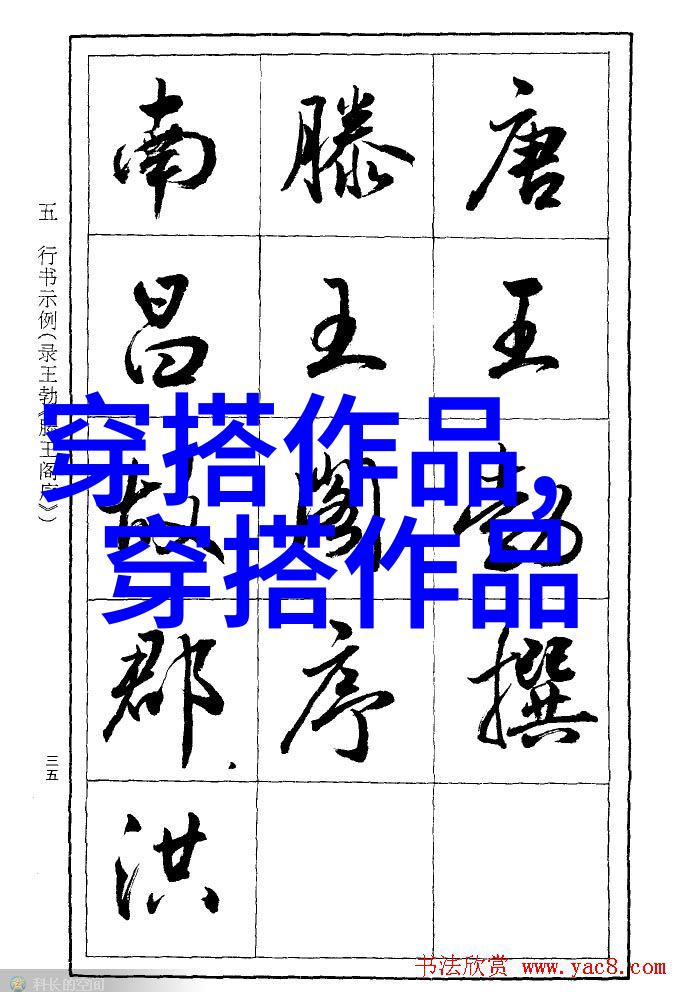 唐王勃撰
滕王阁序
南昌故郡洪
五 行书示例(录王勃《滕王阁序》)
三五
穿搭作品,
穿搭作品
书法欣赏 www.yac8.com
科长的空间